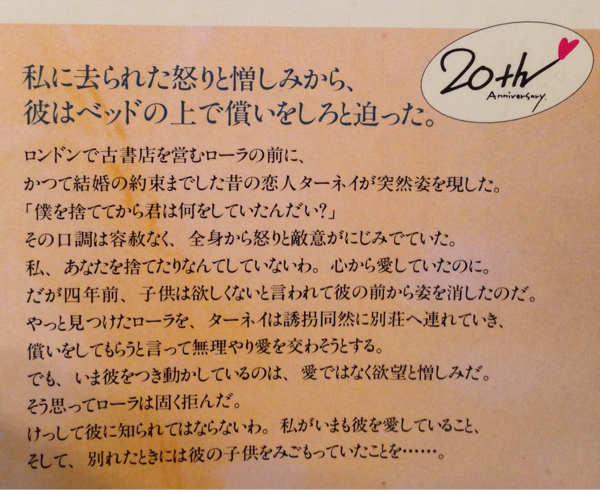 20th
Anniversary.
私に去られた怒りと憎しみから、
彼はベッドの上で償いをしろと迫った。
ロンドンで古書店を営むローラの前に、
かつて結婚の約束までした昔の恋人ターネイが突然姿を現した。
「僕を捨ててから君は何をしていたんだい？」
その口調は容赦なく、全身から怒りと敵意がにじみでていた。
私、あなたを捨てたりなんてしていないわ。心から愛していたのに。
だが四年前、子供は欲しくないと言われて彼の前から姿を消したのだ。
やっと見つけたローラを、ターネイは誘拐同然に別荘へ連れていき、
償いをしてもらうと言って無理やり愛を交わそうとする。
でも、いま彼をつき動かしているのは、愛ではなく欲望と憎しみだ。
そう思ってローラは固く拒んだ。
けっして彼に知られてはならないわ。私がいまも彼を愛していること、
そして、別れたときには彼の子供をみごもっていたことを……。